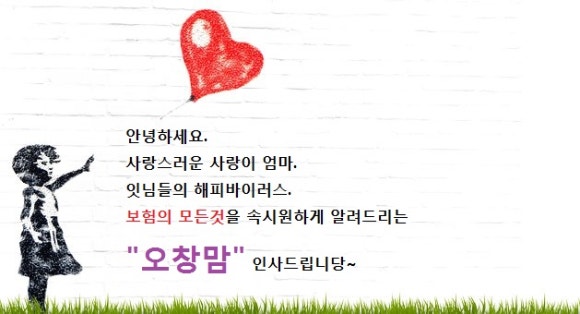 안녕하세요.
사랑스러운 사랑이 엄마.
잇님들의 해피바이러스.
보험의 모든것을 속시원하게 알려드리는
"오창맘" 인사드립니당~